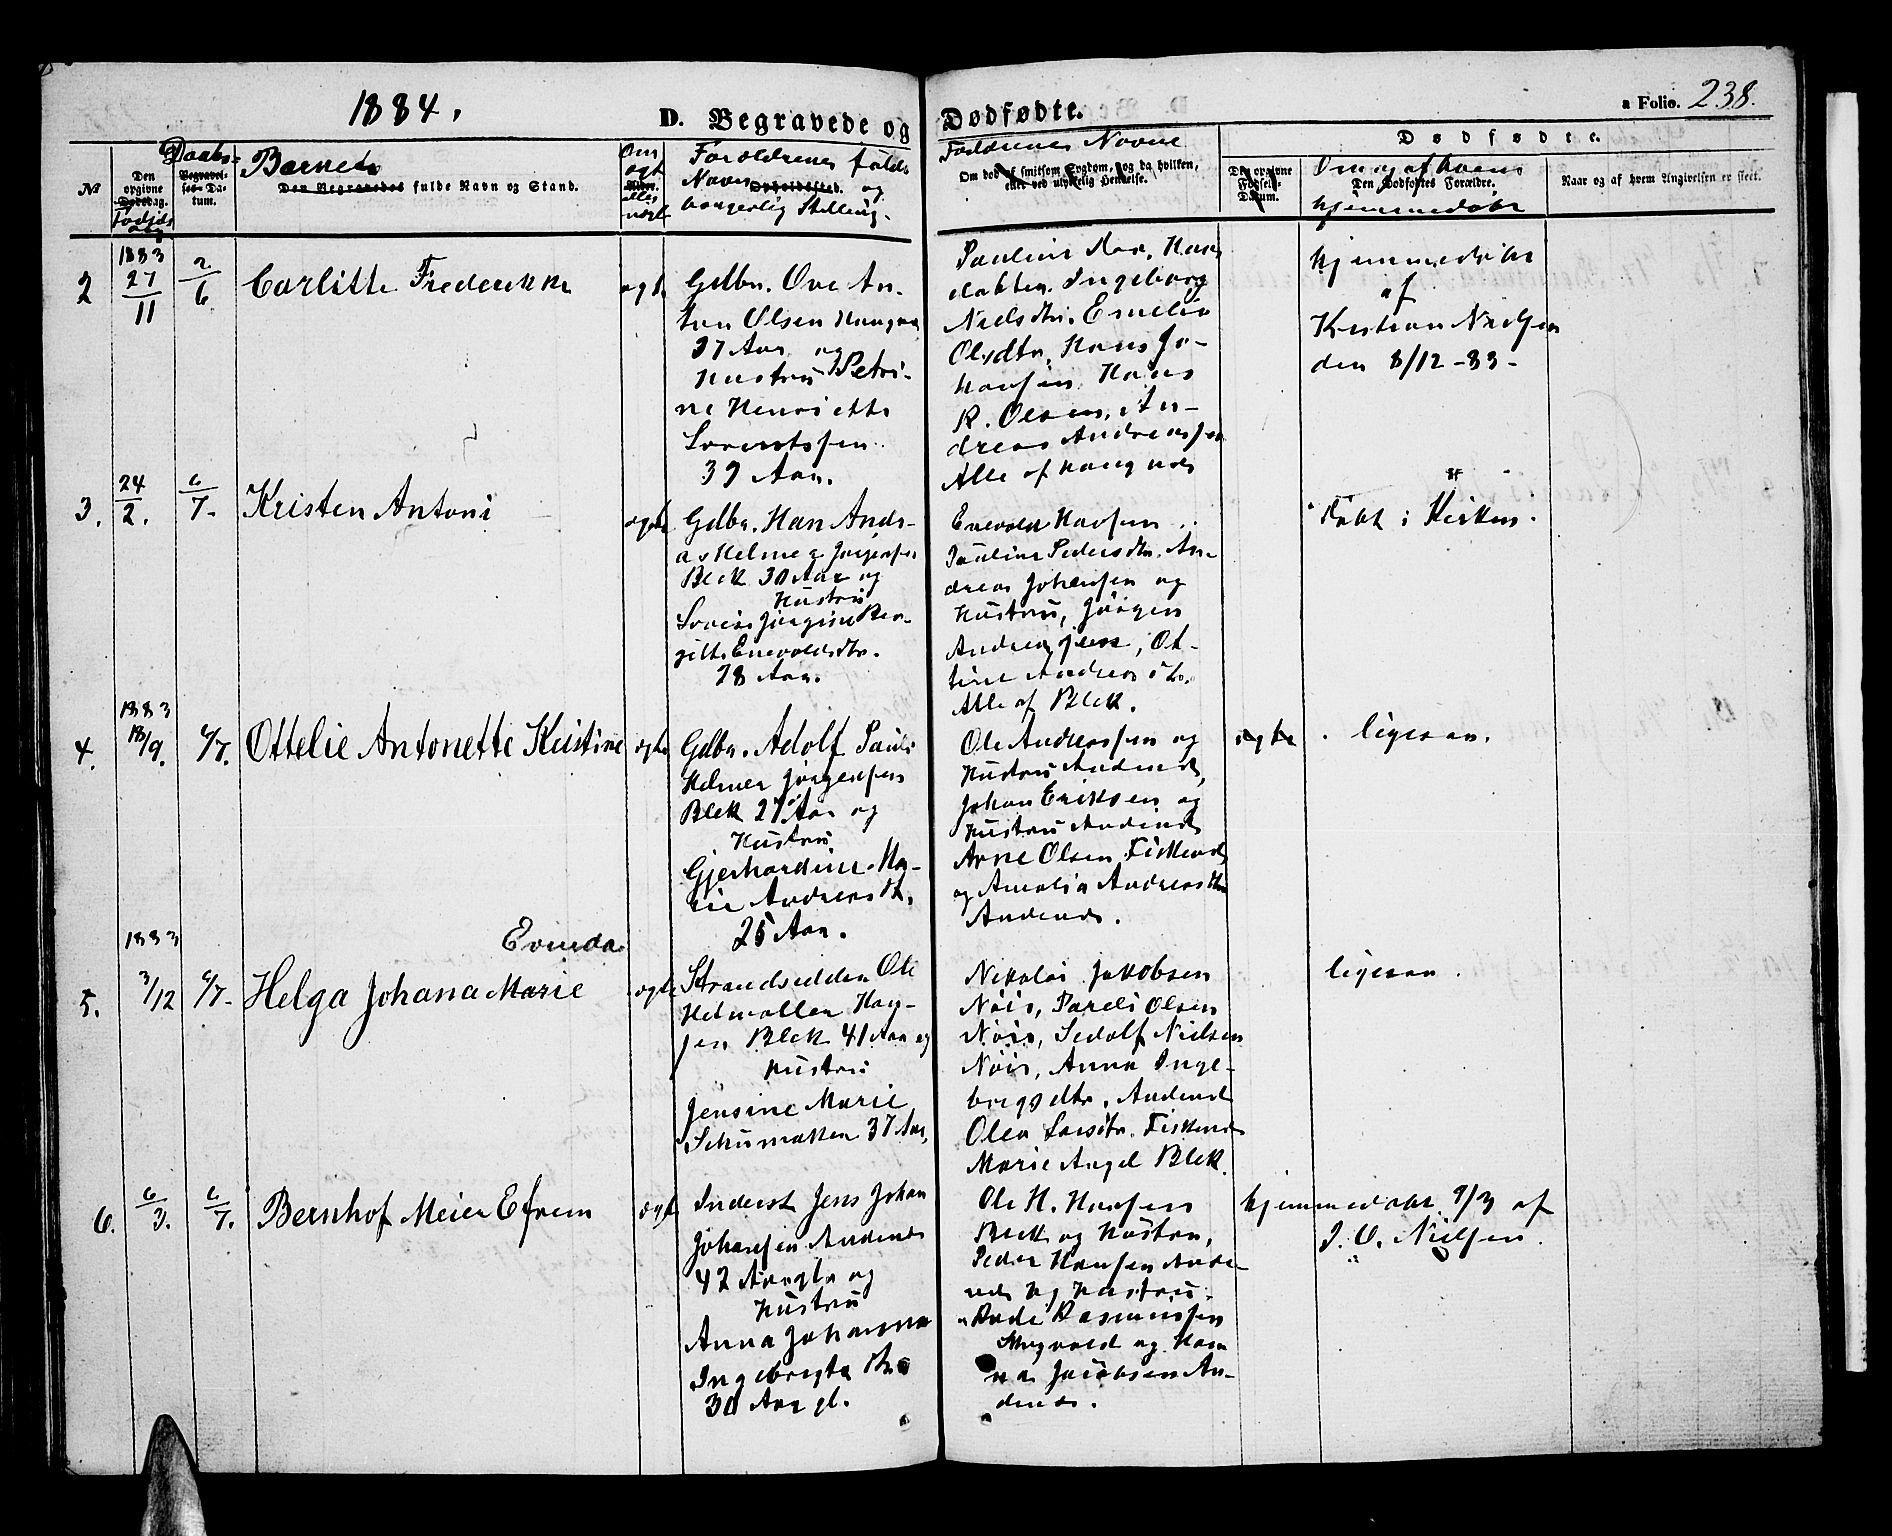 1884.
D. Begravede og Dødfødte.
a Folio. 238.
Daabs-
No
Den opgivne Dødsdag.
Fødsels
Begravelses-Datum.
Barnets
Den Begravedes fulde Navn og Stand.
Om ægte eller uægte
Forældrenes fulde
Navn og
Opholdssted.
borgerlig Stilling.
Faddernes Navne
Om død af smitsom Sygdom, og da hvilken, eller ved ulykkelig Hændelse.
Dødfødte.
Den opgivne Fødsels-Datum.
Om og af hvem
Den Dødfødtes Forældre.
hjemmedøbt
Naar og af hvem Angivelsen er skeet.
2
1883
27/11
2/6
Carlitte Frederikke
ægte
Gdbr. Ove An-
ton Olsen
37 Aar og
Hustru Petri-
ne Henriette
39 Aar.
Hans
Ingeborg
Nielsdtr.
Olsdtr, Hans Jo-
hansen Hans
R. Olsen, An-
dreas Andreassen
Alle af
hjemmedøbt
af
Kristian Nielsen
den 8/12 -83-
3.
24/2.
6/7-
Kristen Antoni
ægte
Gdbr. Han Andr-
as Helmer Jørgensen
Blek 30 Aar og
Hustru
Jørgine Ber-
gitte Enevoldsdtr.
28 Aar.
Enevold Hansen
Pauline Pedersdtr. An-
dreas Johansen og
Hustru, Jørgen
Andreasen, Ot-
tine Andreasdtr.
Alle af Blek.
Døbt i Kirken.
4.
1883
18/9.
6/7.
Ottelie Antonette Kristine
ægte
Gdbr. Adolf Pauli
Helmer Jørgensen
Blek 27 Aar og
Hustru
Gjerhardine Ma-
rie Andreasdtr.
25 Aar.
Ole Andreassen og
Hustru Andenes,
Johan Eriksen og
Hustru Andenes
Arne Olsen Fiskenes
og Amalia Andreasdtr
Andenes.
ægte
ligesaa.
5.
1883
3/12
6/7-
Evinda
Helga Johana Marie
ægte
Strandsidder Ole
Han-
sen Blek 41 Aar og
Hustru
Jensine Marie
37 Aar,
Nikolai Jakobsen
Nøis, Pareli Olsen
Nøis, Sedolf Nielsen
Nøis, Anna Inge-
brigsdtr. Andenes
Olea Larsdtr. Fiskenes
Marie Angel Blek.
ligesaa.
6.
6/3.
6/7.
Bernhof Meier Efrem
ægte
Inderst Jens Johan
Johansen Andenes
42 Aargl. og
Hustru
Anna Johanna
Ingebrigtsdtr.
30 Aar gl.
Ole H. Hansen
Blek og Hustru,
Peder Hansen Ande-
nes og Hustru.
Rasmussen
og Han-
na Jacobsen An-
denes.
hjemmedøbt 9/3 af
J. O. Nielsen.